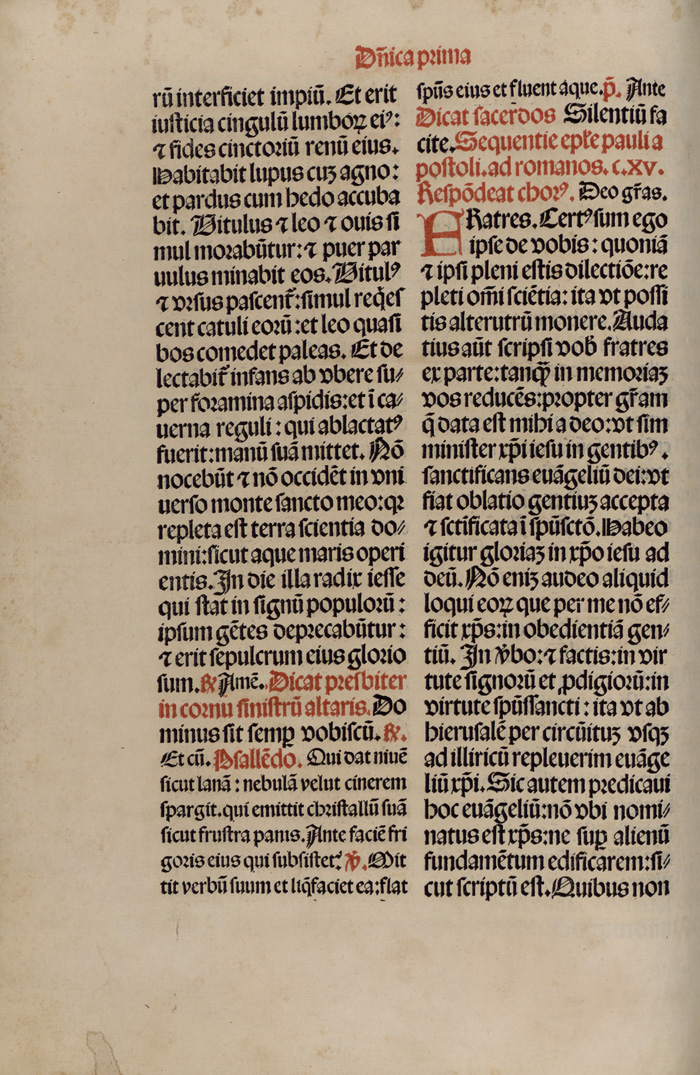 Dñica prima
rū interficiet impiū. Et erit
iusticia cingulū lumboꝝ eiꝰ:
⁊ fides cinctoriū renū eius.
Habitabit lupus cuꝫ agno:
et pardus cum hedo accuba
bit. Uitulus ⁊ leo ⁊ ouis si
mul morabūtur: ⁊ puer par
uulus minabit eos. Uitulꝰ
⁊ vrsus pascent̄: simul reqͥes
cent catuli eorū: et leo quasi
bos comedet paleas. Et de
lectabit̄ infans ab vbere su⸗
per foramina aspidis: et ī ca⸗
uerna reguli: qui ablactatꝰ
fuerit: manū suā mittet. Nō
nocebūt ⁊ nō occidēt in vni
uerso monte sancto meo: qꝛ
repleta est terra scientia do⸗
mini: sicut aque maris operi
entis. In die illa radix iesse
qui stat in signū populorū:
ipsum gētes deprecabūtur:
⁊ erit sepulcrum eius glorio
sum. ℟ Amē. Dicat presbiter
in cornu sinistrū altaris. Do
minus sit semꝑ vobiscū. ℟.
Et cū. Psallēdo. Qui dat niuē
sicut lanā: nebulā velut cinerem
spargit. qui emittit christallū suā
sicut frustra panis. Ante faciē fri
goris eius qui subsistet? ℣. Mit
tit verbū suum et liq̄faciet ea: flat
spūs eius et fluent aque. p̄. Ante
Dicat sacerdos Silentiū fa
cite. Sequentie epl̄e pauli a
postoli. ad romanos. c. xv.
Respōdeat chorꝰ. Deo gr̄as.
FRatres. Certꝰ sum ego
ipse de vobis: quoniā
⁊ ipsi pleni estis dilectiōe: re
pleti om̄i sciētia: ita vt possi
tis alterutrū monere. Auda
tius aūt scripsi vob̄ fratres
ex parte: tanqꝫ̄ in memoriaꝫ
vos reducēs: propter gr̄am
q̄ data est mihi a deo: vt sim
minister xp̄i iesu in gentibꝰ.
sanctificans euāgeliū dei: vt
fiat oblatio gentiuꝫ accepta
⁊ sctīficata ī spūsctō. Habeo
igitur gloriaꝫ in xp̄o iesu ad
deū. Nō eniꝫ audeo aliquid
loqui eoꝝ que per me nō ef⸗
ficit xp̄s: in obedientiā gen⸗
tiū. In v̓bo: ⁊ factis: in vir
tute signorū et ꝓdigiorū: in
virtute spūssancti: ita vt ab
hierusalē per circūituꝫ vsqꝫ
ad illiricū repleuerim euāge
liū xp̄i. Sic autem predicaui
hoc euāgeliū: nō vbi nomi⸗
natus est xp̄s: ne suꝑ alienū
fundamētum edificarem: si⸗
cut scriptū est. Quibus non